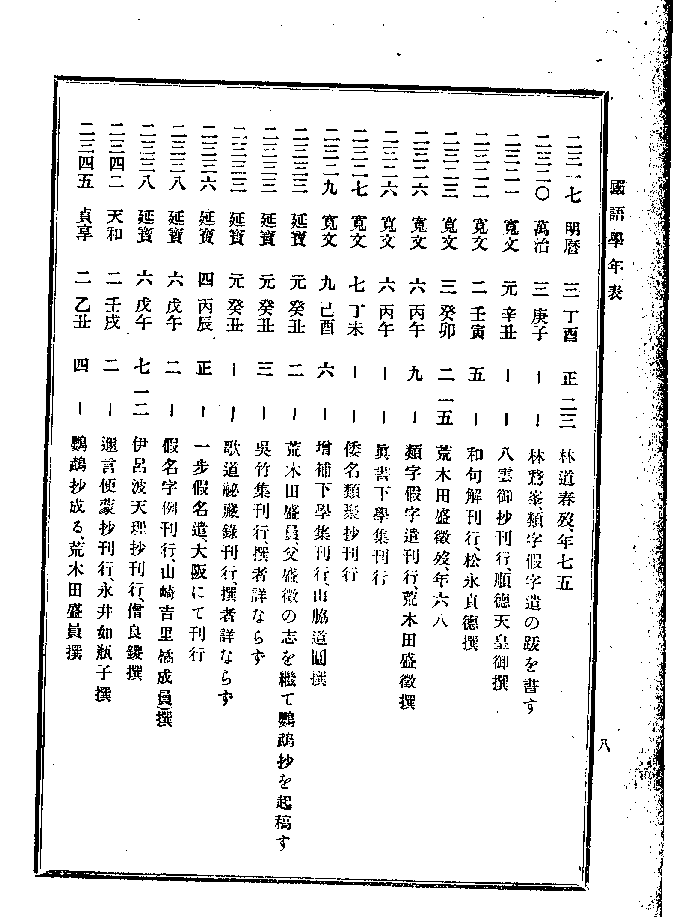 國語學年表
八
二三一七 明曆 三 丁酉 正 二三 林道春歿、年七五
二三二〇 萬治 三 庚子 ー ー 林鵞峯、類字假字遣の跋を書す
二三二一 寬文 元 辛丑 ー ー 八雲御抄刊行、順德天皇御撰
二三二二 寬文 二 壬寅 五 ー 和句解刊行、松永貞德撰
二三二三 寬文 三 癸卯 二 一五 荒木田盛徵歿、年六八
二三二六 寬文 六 丙午 九 ー 類字假字遣刊行、荒木田盛徵撰
二三二六 寬文 六 丙午 ー ー 眞書下學集刊行
二三二七 寬文 七 丁未 ー ー 倭名類聚抄刊行
二三二九 寬文 九 己酉 六 ー 增補下學集刊行、山脇道圓撰
二三三三 延寶 元 癸丑 二 ー 荒木田盛員、父盛徵の志を繼て鸚鵡抄を起稿す
二三三三 延寶 元 癸丑 三 ー 吳竹集刊行、撰者詳ならず
二三三三 延寶 元 癸丑 ー ー 歌道祕藏錄刊行、撰者詳ならず
二三三六 延寶 四 丙辰 正 ー 一步假名遣、大阪にて刊行
二三三八 延寶 六 戊午 二 ー 假名字例刊行、山崎吉里(橘成員)撰
二三三八 延寶 六 戊午 七 一二 伊呂波天理抄刊行、僧良鑁撰
二三四二 天和 二 壬戌 二 ー 邇言便蒙抄刊行、永井如瓶子撰
二三四五 貞享 二 乙丑 四 ー 鸚鵡抄成る、荒木田盛員撰